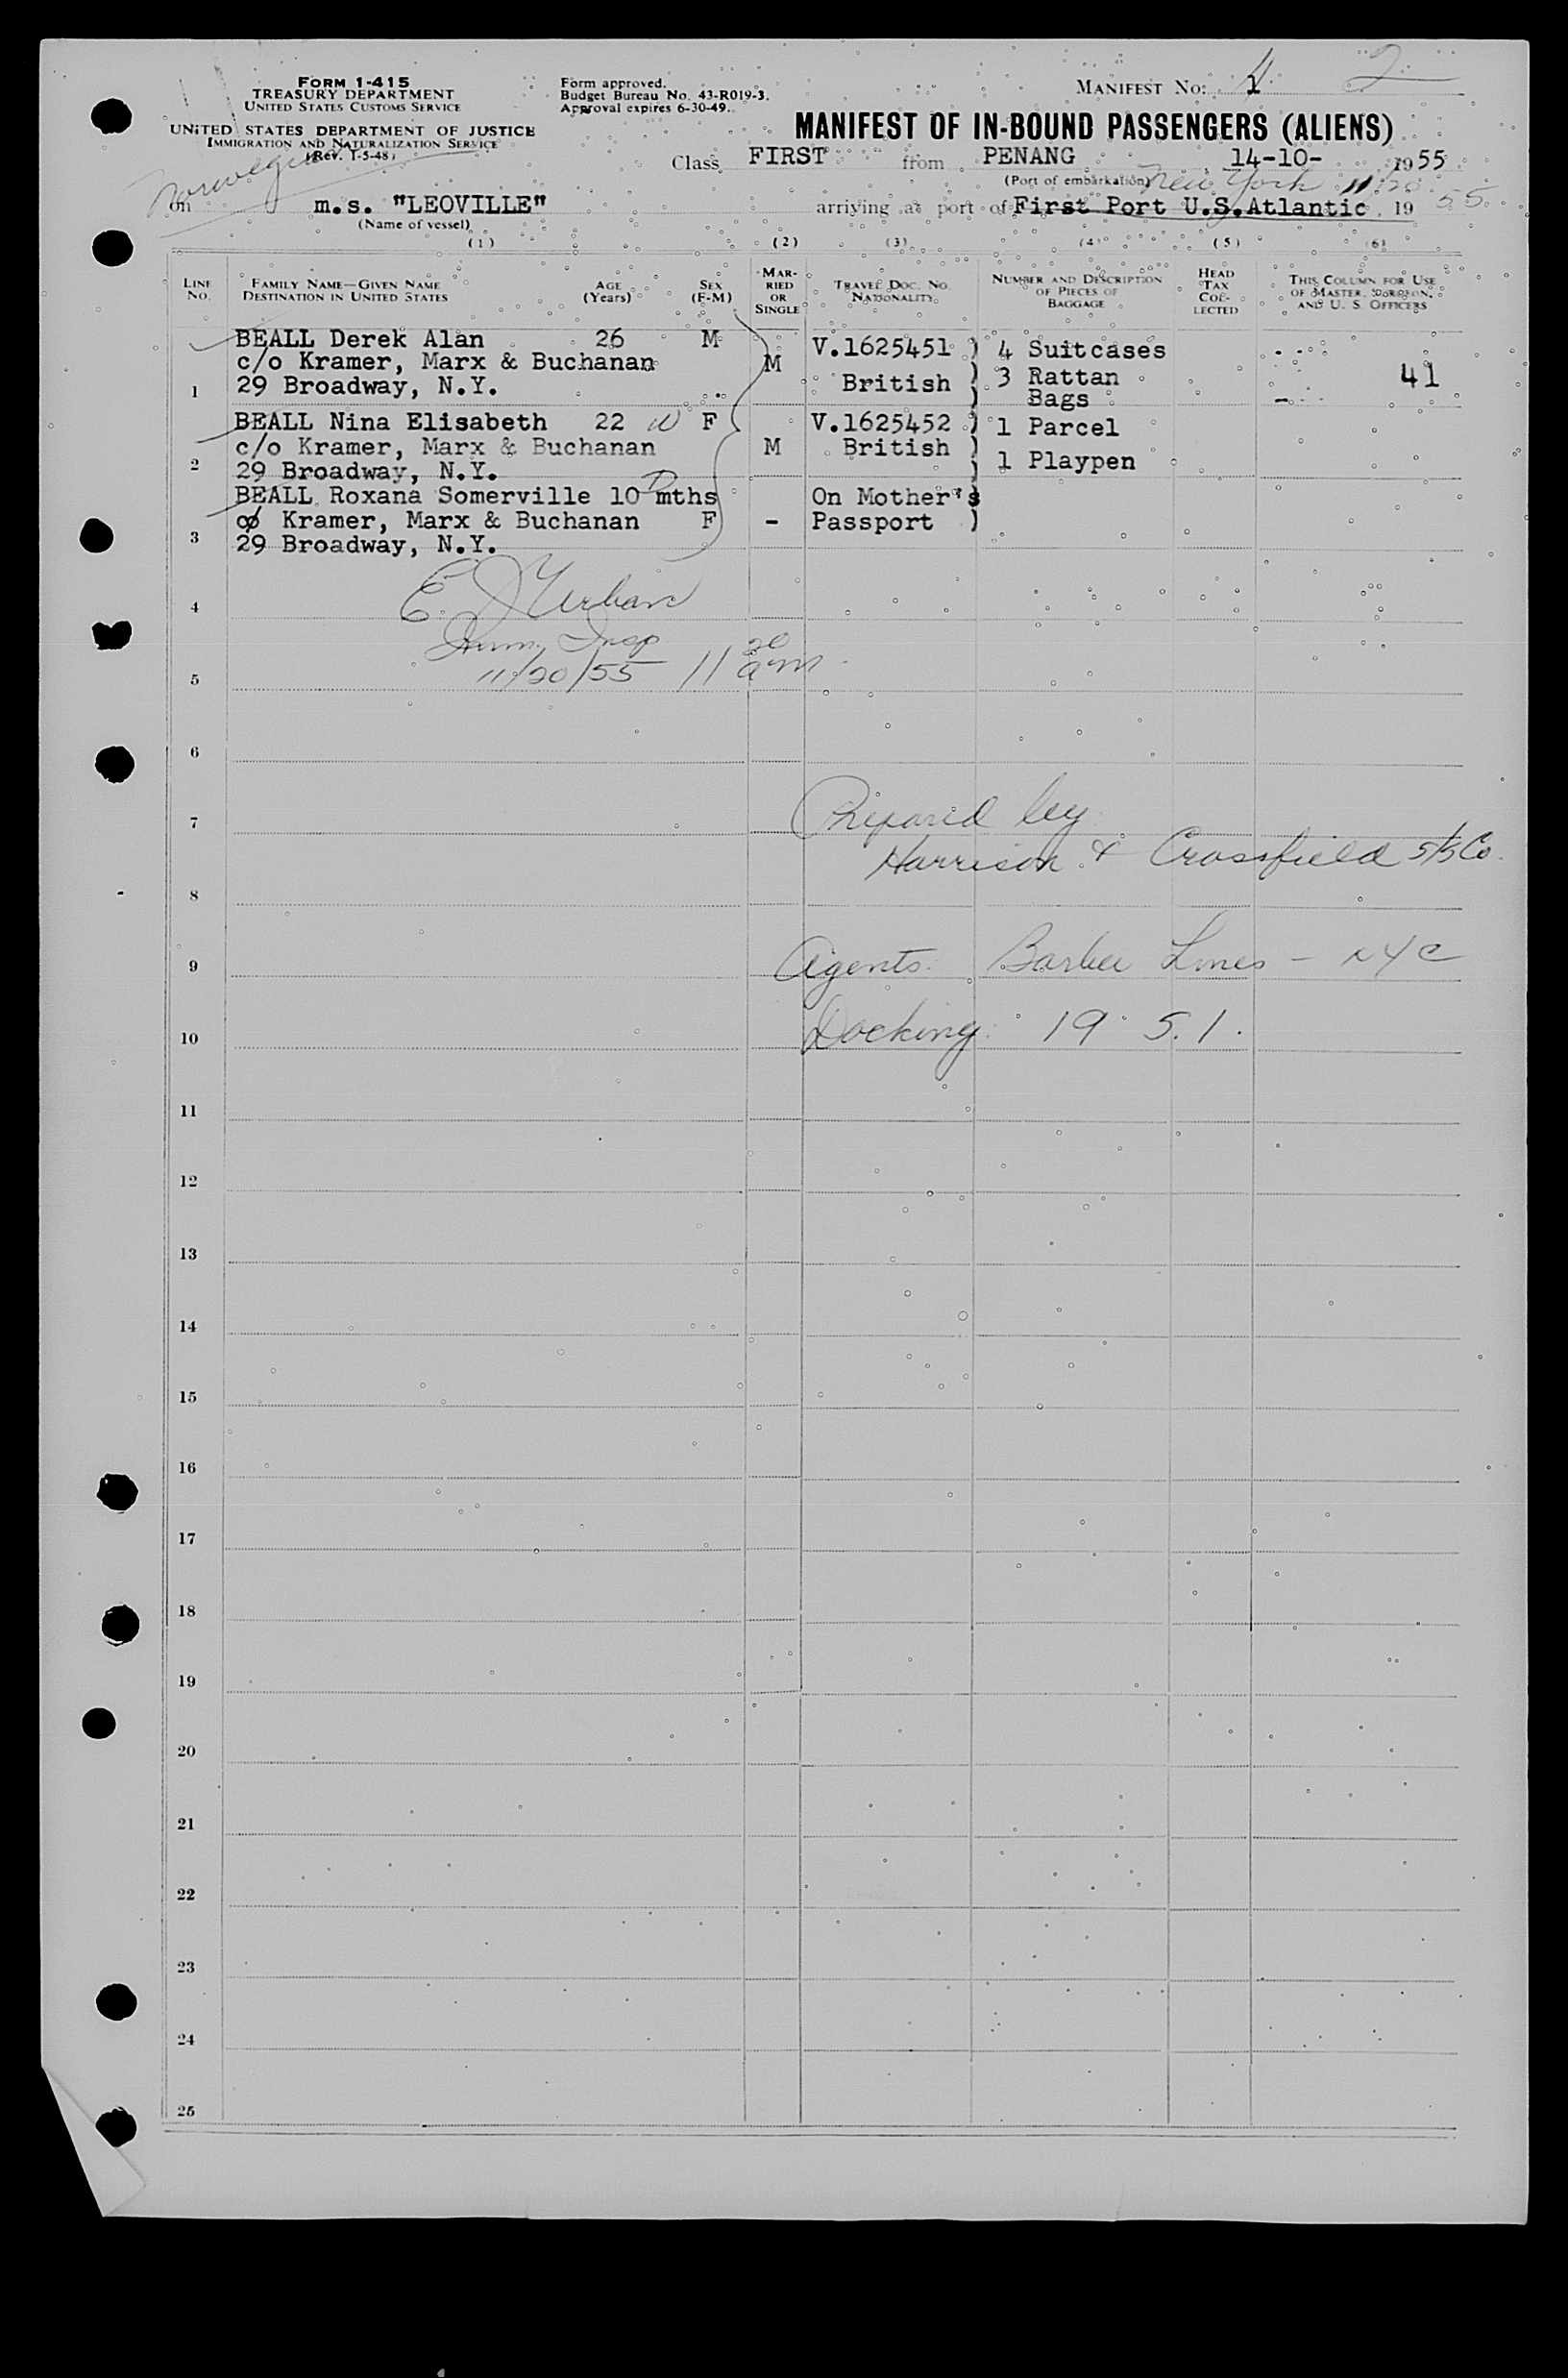 FORM I-415
TREASURY DEPARTMENT
UNITED STATES CUSTOMS SERVICE
UNITED STATES DEPARTMENT OF JUSTICE
IMMIGRATION AND NATURALIZATION SERVICE
(Rev. 1-5-48)
Form approved.
Budget Bureau No. 43-R019-3.
Approval expires 6-30-49.
MANIFEST NO. 1 2
MANIFEST OF IN-BOUND PASSENGERS (ALIENS)
Class FIRST from PENANG 14-10- 1955
(Port of embarkation)
Norwegian
New York 11/20 55
on m.s. "LEOVILLE" arriving at port of First Port U.S.Atlantic, 19
(Name of vessel)
(1) (2) (3) (4) (5) (6)
LINE NO.
FAMILY NAME—GIVEN NAME
DESTINATION IN UNITED STATES
AGE (Years)
SEX (F-M)
MARRIED OR SINGLE
TRAVEL DOC. NO.
NATIONALITY
NUMBER AND DESCRIPTION OF PIECES OF BAGGAGE
HEAD TAX COLLECTED
THIS COLUMN FOR USE OF MASTER, SURGEON, AND U. S. OFFICERS
BEALL Derek Alan 26 M V.1625451 ) 4 Suitcases
c/o Kramer, Marx & Buchanan M
1 29 Broadway, N.Y. British ) 3 Rattan Bags 41
BEALL Nina Elisabeth 22 W F V.1625452 ) 1 Parcel
c/o Kramer, Marx & Buchanan M British )
2 29 Broadway, N.Y. ) 1 Playpen
BEALL Roxana Somerville 10 mths On Mother's
c/o Kramer, Marx & Buchanan F - Passport )
3 29 Broadway, N.Y.
4 E. J. Urban
Imm. Insp
5 11/20/55 11 20 am
6
7 Prepared by
Harrison & Crossfield S/S Co.
8
9 Agents: Barber Lines - NYC
10 Docking: 19 5.1.
11
12
13
14
15
16
17
18
19
20
21
22
23
24
25